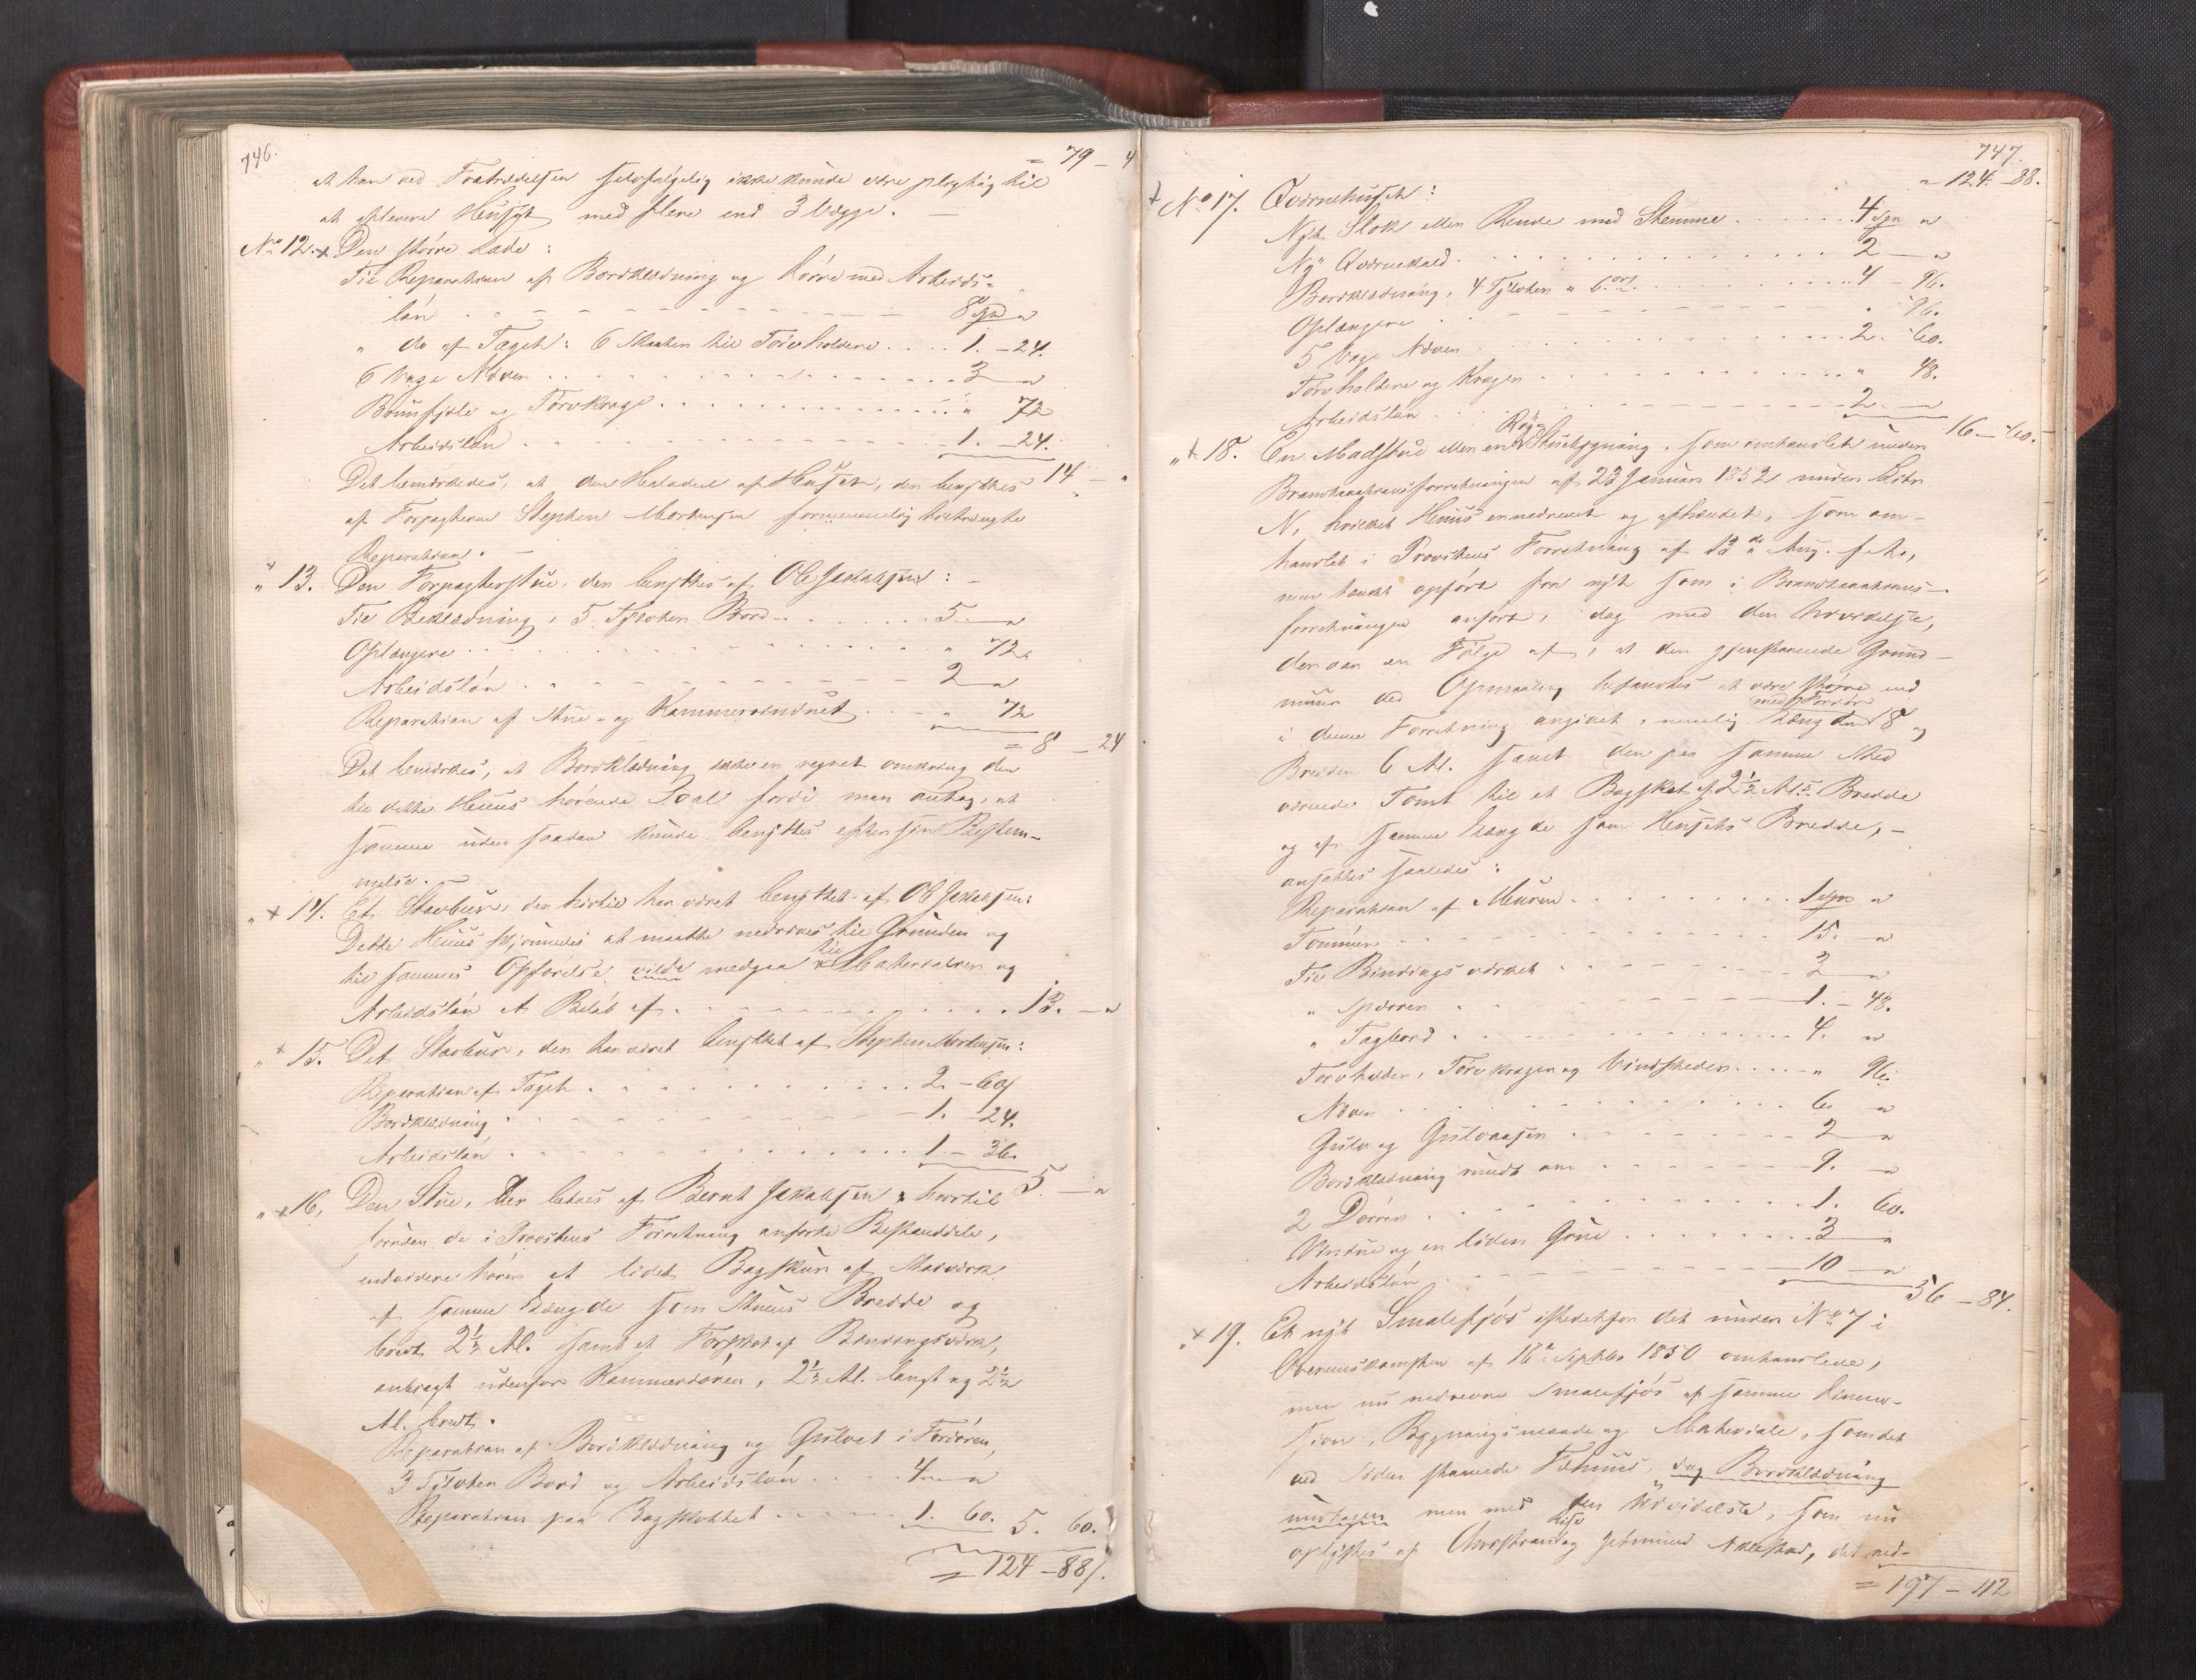 746.
= 79 – 4
at han ved Fratrædelsen selvfølgelig ikke kunde være pligtig til
at aflevere Huset med flere end 3 Vægge. –
No 12. x Den større Lade:
Til Reparation af Bordklædning og Dørre med Arbeids-
løn . . . 8 Spd "
" do af Taget: 6 Stokker til Torvholdere . . . 1. – 24.
6 Voge Næver . . . 3 – "
Bruusfjæle og Torvkroge . . . " 72
Arbeidsløn . . . 1. – 24.
14 – "
Det bemærkedes, at den Halvdeel af Huset, der benyttes
af Forpagteren Stephen Mortensen fornemmelig tiltrængte
Reparation. –
" 13. Den Forpagterstue, der benyttes af Ole Jakobsen: –
Til Beklædning, 5 Tylvter Bord . . . 5 – "
Oplængere . . . " 72.
Arbeidsløn . . . 2 – "
Reparation af Stue- og Kammervinduet . . . " 72
= 8 – 24
Det bemærkes, at Bordklædning ikke er regnet omkring den
til dette Huus hørende Sval fordi man antog, at
samme uden saadan kunde benyttes efter sin Bestem-
melse. –
" x 14. Et Stavbuur, der hidtil har været benyttet af Ole Jakobsen:
Dette Huus skjønnedes at maatte nedrives til Grunden og
til sammes Opførelse vilde medgaa til Materialier og
Arbeidsløn et Beløb af . . . 13. – "
" x 15. Det Stavbuur, der har været benyttet af Stephen Mortensen:
Reparation af Taget . . . 2. – 60
Bordklædning . . . 1. – 24.
Arbeidsløn . . . 1. – 36.
5. – "
" x 16. Den Stue, der beboes af Bernt Jakobsen, hvortil
foruden de i Provstens Forretning anførte Bestanddele,
endvidere hører et lidet Bagskuur af Stavværk
af samme Længde som Stuens Bredde og
bredt 2½ Al. samt et Forskot af Bindingsværk,
anbragt udenfor Kammerdøren, 2½ Al. langt og 2½
Al. bredt.
Reparation af Bordklædning og Gulvet i Fordøren,
3 Tylvter Bord og Arbeidsløn . . . 4 – "
Reparation paa Bagskottet . . . 1. 60. 5. 60.
= 124 – 88.
747.
= 124 – 88.
x No 17. Qværnehuset:
Nyt Stok eller Rende med Stemme . . . 4 Spd "
Ny Qværnekald . . . 2 – "
Bordklædning, 4 Tylvter a 6 ort . . . 4 – 96.
Oplængere . . . " 96.
5 Voge Næver . . . 2. – 60.
Torvholdere og Kroger . . . " 48.
Arbeidsløn . . . 2. – "
16. – 60.
" x 18. En Madstue eller en Røg-Stuebygning, som omhandlet under
Brandtaxationsforretningen af 23 Januar 1832 under Litr
N, hvilket Huus er nedrevet og afhændet, som om-
handlet i Provstens Forretning af 13de Aug. f. A.,
men tænkt opført fra nyt som i Brandtaxations-
forretningen anført, dog med den Udvidelse,
der var en Følge af, at den gjenstaaende Grund-
muur ved Opmaaling befandtes at være større end
i denne Forretning angivet, nemlig Længden med Fordør 18 og
Bredden 6 Al. samt den paa samme Sted
værende Tomt til et Bagskot af 2½ Al.s Bredde
og af samme Længde som Husets Bredde, –
ansattes saaledes:
Reparation af Muren . . . 1 Spd "
Tømmer . . . 15. – "
Til Bindingsværket . . . 3 – "
" Sperrer . . . 1. – 48.
" Tagbord . . . 4. "
Torvholder, Torvkroger og Vindskeder . . . " 96.
Næver . . . 6 "
Gulv og Gulvaaser . . . 2 – "
Bordklædning rundt om . . . 9. – "
2 Dørrer . . . 1. 60.
Vindue og en liden Grue . . . 3 "
Arbeidsløn . . . 10 – "
56 – 84.
" x 19. Et nyt Smalefjøs istedetfor det under No 7 i
Overenskomsten af 16de Septbr 1850 omhandlede,
men nu nedrevne Smalefjøs af samme Dimen-
sion, Bygningsmaade og Materiale, som det
ved Siden staaende Fæhuus, dog Bordklædning
undtagen men med den Udvidelse, som nu
oplystes af Christian og Gjetmund Akeslad, det ned-
= 197 – 112